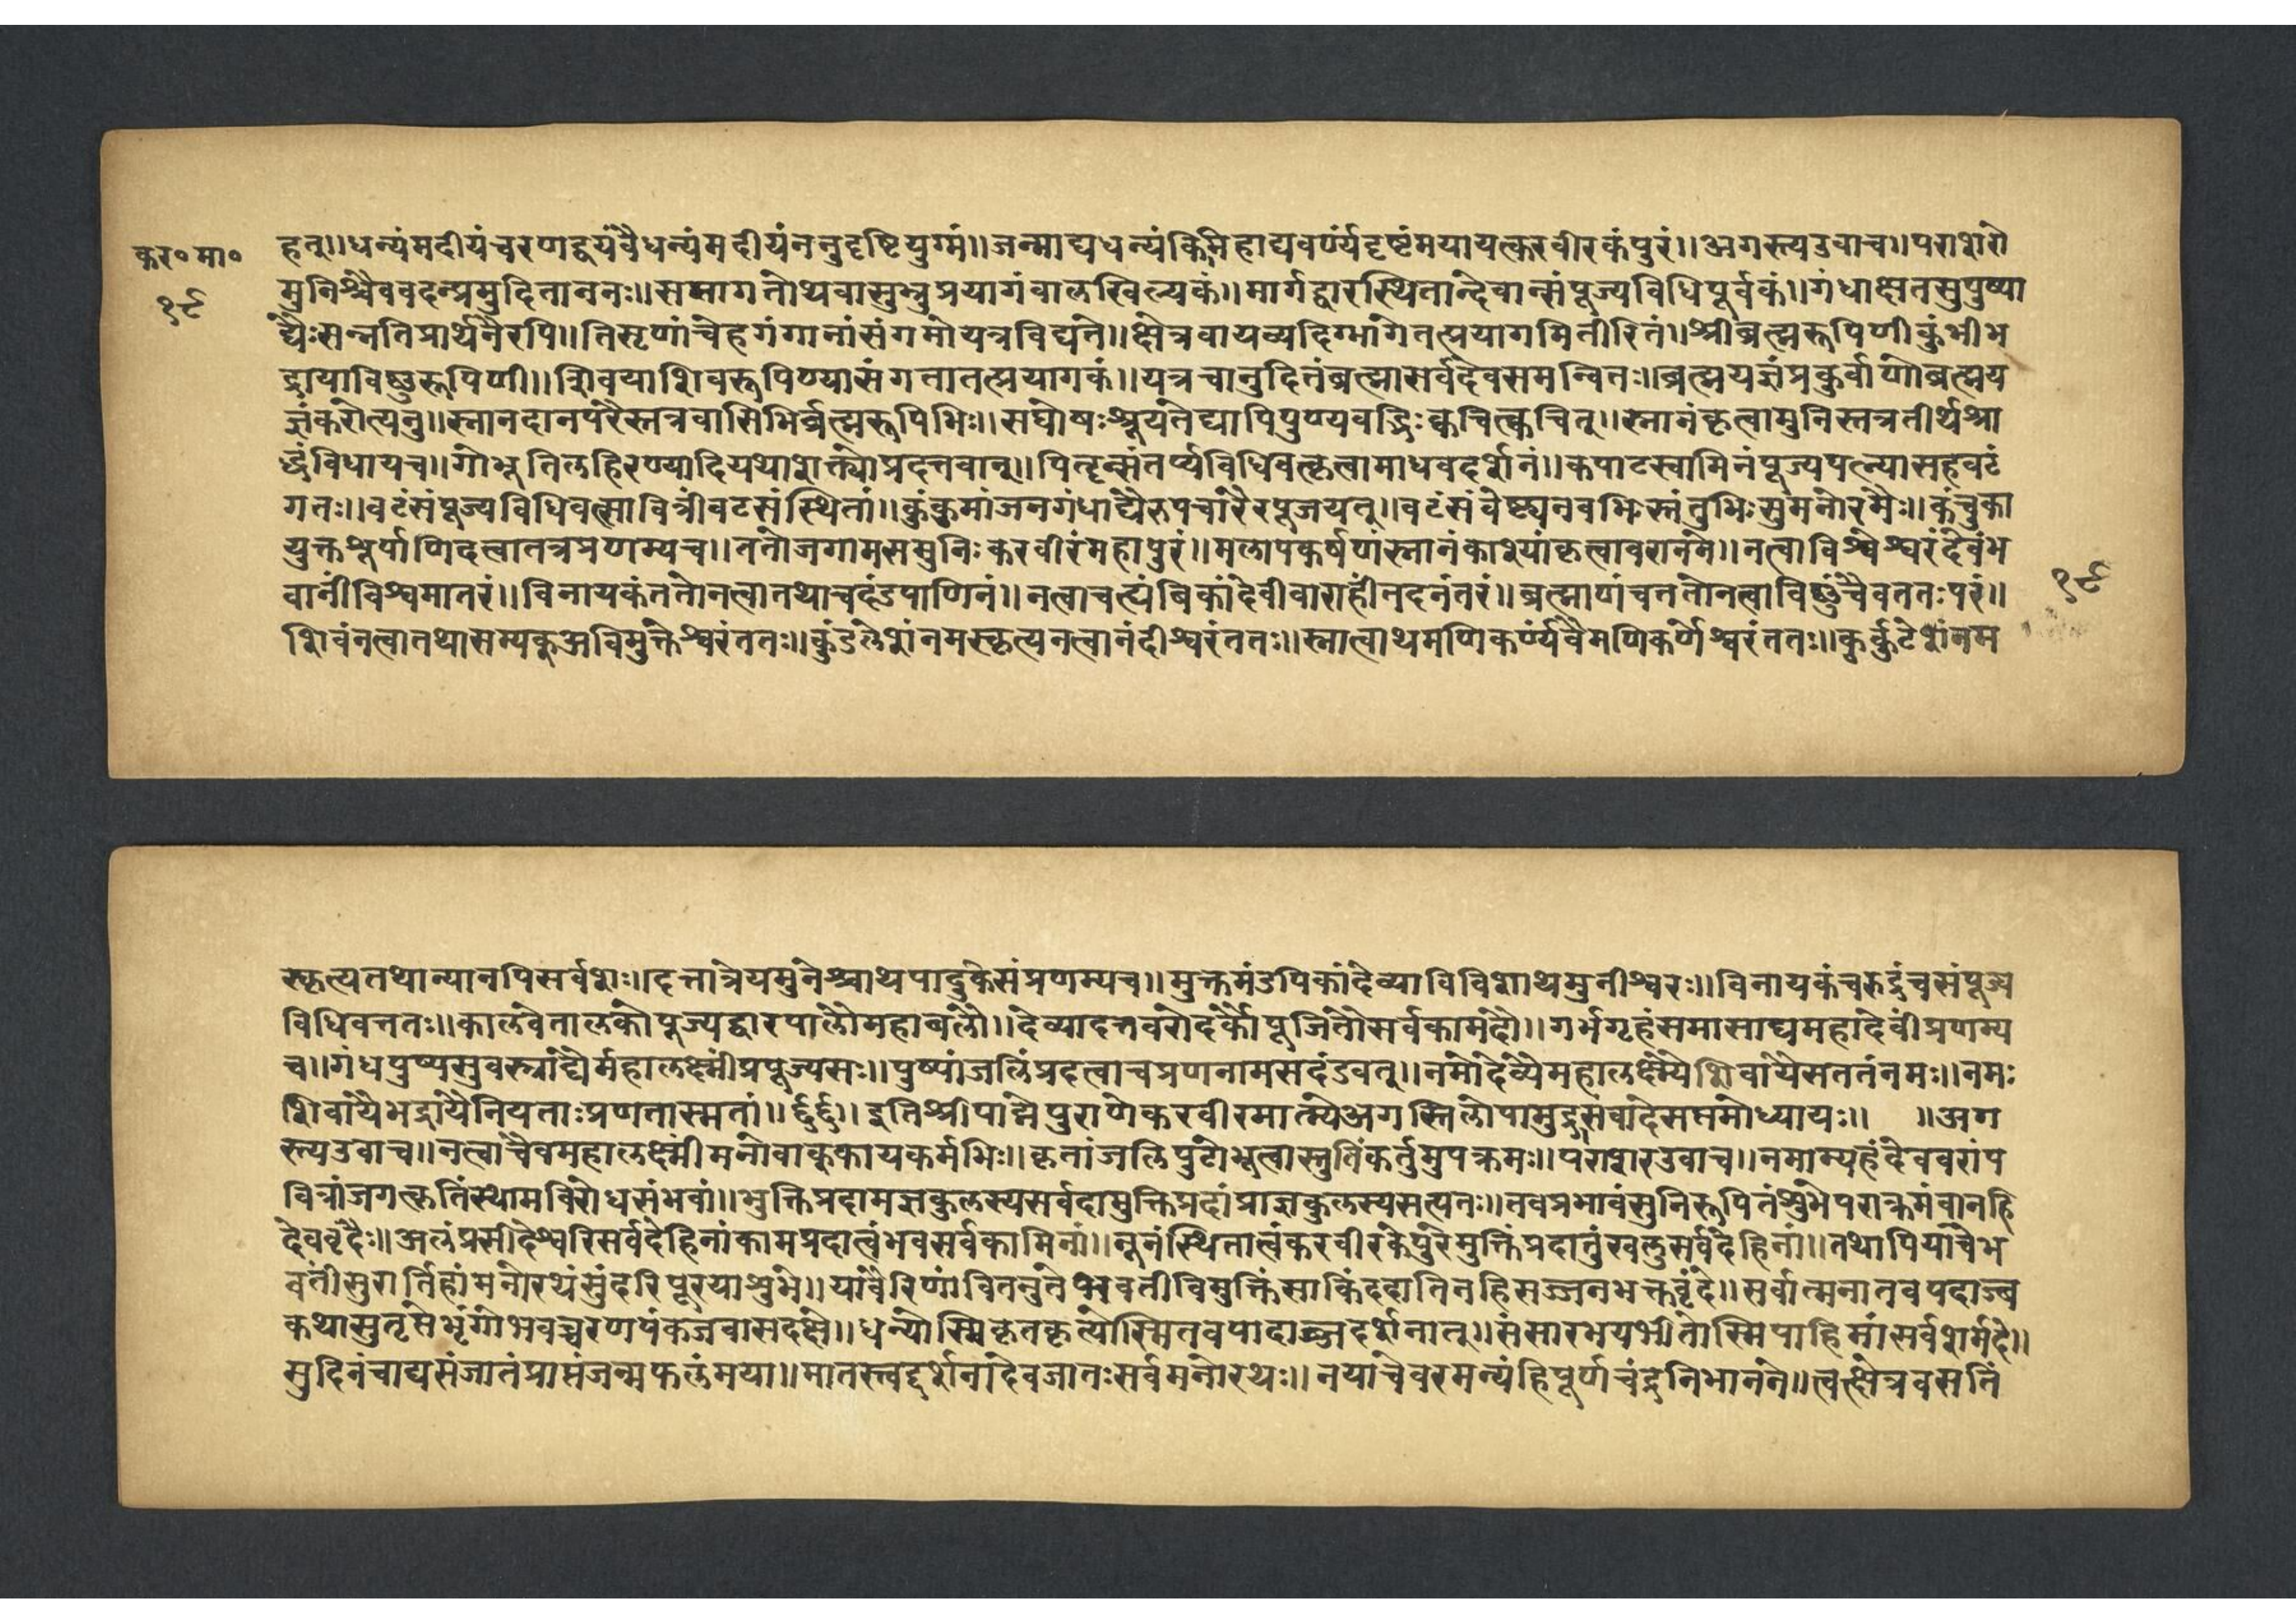 कर॰मा॰
१९
हत्।।धन्यंमदीयंचरणद्वयंवैधन्यंमदीयंननुदृष्टियुग्मं।।जन्माद्यधन्यंकिमिहाद्यवर्ण्यंदृष्टंमयायत्करवीरकंपुरं।।अगस्त्यउवाच।।पराशरो
मुनिश्चैववदन्प्रमुदिताननः।।समागतोथवासुभ्रुप्रयागंवालखिल्यकं।।मार्गद्वारस्थितान्देवान्संपूज्यविधिपूर्वकं।।गंधाक्षतसुपुष्पा
द्यैःसन्नतिप्रार्थनैरपि।।तिसृणांचेहगंगानांसंगमोयत्रविद्यते।।क्षेत्रवायव्यदिग्भागेतत्प्रयागमितीरितं।।श्रीब्रह्मरूपिणीकुंभीभ
द्रायाविष्णुरूपिणी।।शिवयाशिवरूपिण्यासंगतातत्प्रयागकं।।यत्रचानुदिनंब्रह्मासर्वदेवसमन्वितः।।ब्रह्मयज्ञंप्रकुर्वाणोब्रह्मय
ज्ञंकरोत्यनु।।स्नानदानपरैस्तत्रवासिभिर्ब्रह्मरूपिभिः।।सघोषःश्रूयतेद्यापिपुण्यवद्भिःक्वचित्क्वचित्।।स्नानंकृत्वामुनिस्तत्रतीर्थश्रा
द्धंविधायच।।गोभूतिलहिरण्यादियथाशक्त्याप्रदत्तवान्।।पितॄन्संतर्प्यविधिवत्कृत्वामाधवदर्शनं।।कपाटस्वामिनंपूज्यपत्न्यासहवटं
गतः।।वटंसंपूज्यविधिवत्सावित्रींवटसंस्थितां।।कुंकुमांजनगंधाद्यैरुपचारैरपूजयत्।।वटंसंवेष्ट्यनवभिःस्तंतुभिःसुमनोरमैः।।कंचुका
युक्तशूर्पाणिदत्वातत्रप्रणम्यच।।ततोजगामससुनिःकरवीरंमहापुरं।।मलापकर्षणंस्नानंकाश्यांकृत्वावरानने।।नत्वाविश्वेश्वरंदेवंभ
वानींविश्वमातरं।।विनायकंततोनत्वातथाचदंडपाणिनं।।नत्वाचत्र्यंबिकांदेवीवाराहींतदनंतरं।।ब्रह्माणंचततोनत्वाविष्णुंचैवततःपरं।।
१९
शिवंनत्वातथासम्यक्अविमुक्तेश्वरंततः।।कुंडलेशंनमस्कृत्यनत्वानंदीश्वरंततः।।स्नात्वाथमणिकर्ण्यंवैमणिकर्णेश्वरंततः।।कुर्कुटेशंनम
स्कृत्यतथान्यानपिसर्वशः।।दत्तात्रेयमुनेश्चाथपादुकेसंप्रणम्यच।।मुक्तेमंडपिकांदेव्याविविशाथमुनीश्वरः।।विनायकंचरुद्रंचसंपूज्य
विधिवत्ततः।।कालवेतालकौपूज्यद्वारपालौमहाबलौ।।देव्यादत्तवरोदर्कौपूजितौसर्वकामदौ।।गर्भगृहंसमासाद्यमहादेवींप्रणम्य
च।।गंधपुष्पसुवस्त्राद्यैर्महालक्ष्मींप्रपूज्यसः।।पुष्पांजलिंप्रदत्वाचप्रणनामसदंडवत्।।नमोदेव्यैमहालक्ष्म्यैशिवायैसततंनमः।।नमः
शिवायैभद्रायैनियताःप्रणतास्मतां।।छ्छ।।इतिश्रीपाद्मेपुराणेकरवीरमात्म्येअगस्तिलोपामुद्रासंवादेसप्तमोध्यायः।।    ।।अग
स्त्यउवाच।।नत्वाचैवमहालक्ष्मींमनोवाक्कायकर्मभिः।।कृतांजलिपुटोभूत्वास्तुतिंकर्तुमुपक्रमः।।पराशरउवाच।।नमाम्यहंदेववरांप
वित्रांजगत्कृतिंस्थामविरोधसंभवां।।भुक्तिप्रदामज्ञकुलस्यसर्वदामुक्तिप्रदांप्राज्ञकुलस्यसत्यतः।।तवप्रभावंसुनिरूपितंशुभेपराक्रमंवानहि
देववृंदैः।।अलंप्रसीदेश्वरिसर्वदेहिनांकामप्रदात्वंभवसर्वकामिनां।।नूनंस्थितात्वंकरवीरकेपुरेमुक्तिंप्रदातुंखलुसर्वदेहिनां।।तथापियाचैभ
वतींसुरार्तिहांमनोरथंसुंदरिपूरयाशुमे।।यांवैरिणांवितनुतेभवतीविमुक्तिंसाकिंददातिनहिसज्जनभक्तवृंदे।।सर्वात्मनातवपदाब्ज
कथासुतृप्तेभृंगोभवच्चरणपंकजवासदक्षे।।धन्योस्मिकृतकृत्योस्मितवपादाब्जदर्शनात्।।संसारभयभीतोस्मिपाहिमांसर्वशर्मदे।।
सुदिनंचाद्यसंजातंप्राप्तंजन्मफलंमया।।मातस्त्वद्दर्शनादेवजातःसर्वमनोरथः।।नयाचेवरमन्यंहिपूर्णचंद्रनिभानने।।त्वत्क्षेत्रवसतिं